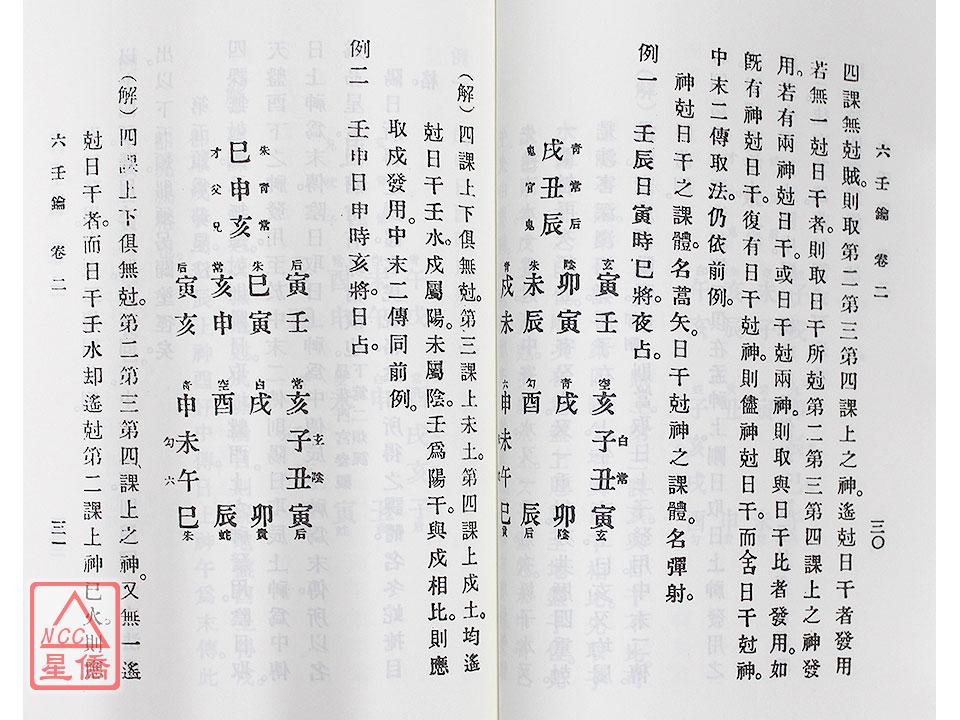 六壬鑰 卷二 三〇
四課無尅賊。則取第二第三第四課上之神。遙尅日干者發用
若無一尅日干者。則取日干所尅第二第三第四課上之神發
用。若有兩神尅日干。或日干尅兩神。則取與日干比者發用。如
旣有神尅日干。復有日干尅神。則儘神尅日干。而舍日干尅神。
中末二傳取法。仍依前例。
神尅日干之課體。名蒿矢。日干尅神之課體。名彈射。
例一 壬辰日寅時巳將。夜占。
青 常 后
戌 丑 辰
鬼 官 鬼
玄 陰 朱 青
寅 卯 未 戌
壬 寅 辰 未
空 白 常
亥 子 丑 寅 玄
青 戌 卯 陰
勾 酉 辰 后
六 申 未 午 巳
(解)四課上下俱無尅。第三課上未土。第四課上戌土。均遙
尅日干壬水。戌屬陽。未屬陰。壬爲陽干。與戌相比。則應
取戌發用。中末二傳同前例。
例二 壬申日申時亥將。日占。
朱 青 常
巳 申 亥
才 父 兄
后 朱 常 后
寅 巳 亥 寅
壬 寅 申 亥
常 玄 陰
亥 子 丑 寅 后
白 戌 卯 貴
空 酉 辰 蛇
青 申 未 午 巳 朱
勾 六
(解)四課上下俱無尅。第二第三第四、課上之神。又無一遙
尅日干者。而日干壬水却遙尅第二課上神巳火。則應
六壬鑰 卷二 三一
NCC
星僑